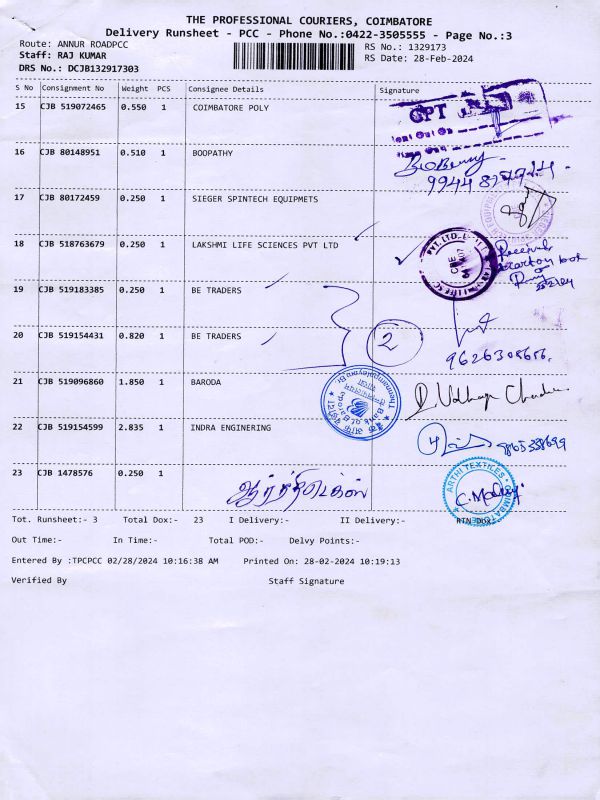 THE PROFESSIONAL COURIERS, COIMBATORE
Delivery Runsheet - PCC - Phone No.:0422-3505555 - Page No.:3
Route: ANNUR ROADPCC RS No.: 1329173
Staff: RAJ KUMAR RS Date: 28-Feb-2024
DRS No.: DCJB132917303
S No Consignment No Weight PCS Consignee Details Signature
15 CJB 519072465 0.550 1 COIMBATORE POLY
GPT
16 CJB 80148951 0.510 1 BOOPATHY
17 CJB 80172459 0.250 1 SIEGER SPINTECH EQUIPMETS
18 CJB 518763679 0.250 1 LAKSHMI LIFE SCIENCES PVT LTD
Received
19 CJB 519183385 0.250 1 BE TRADERS
20 CJB 519154431 0.820 1 BE TRADERS
2
9626308656.
21 CJB 519096860 1.850 1 BARODA
Bank of Baroda
22 CJB 519154599 2.835 1 INDRA ENGINERING
23 CJB 1478576 0.250 1
ARTHI TEXTILES
Tot. Runsheet:- 3 Total Dox:- 23 I Delivery:- II Delivery:- RTN DOX:-
Out Time:- In Time:- Total POD:- Delvy Points:-
Entered By :TPCPCC 02/28/2024 10:16:38 AM Printed On: 28-02-2024 10:19:13
Verified By Staff Signature